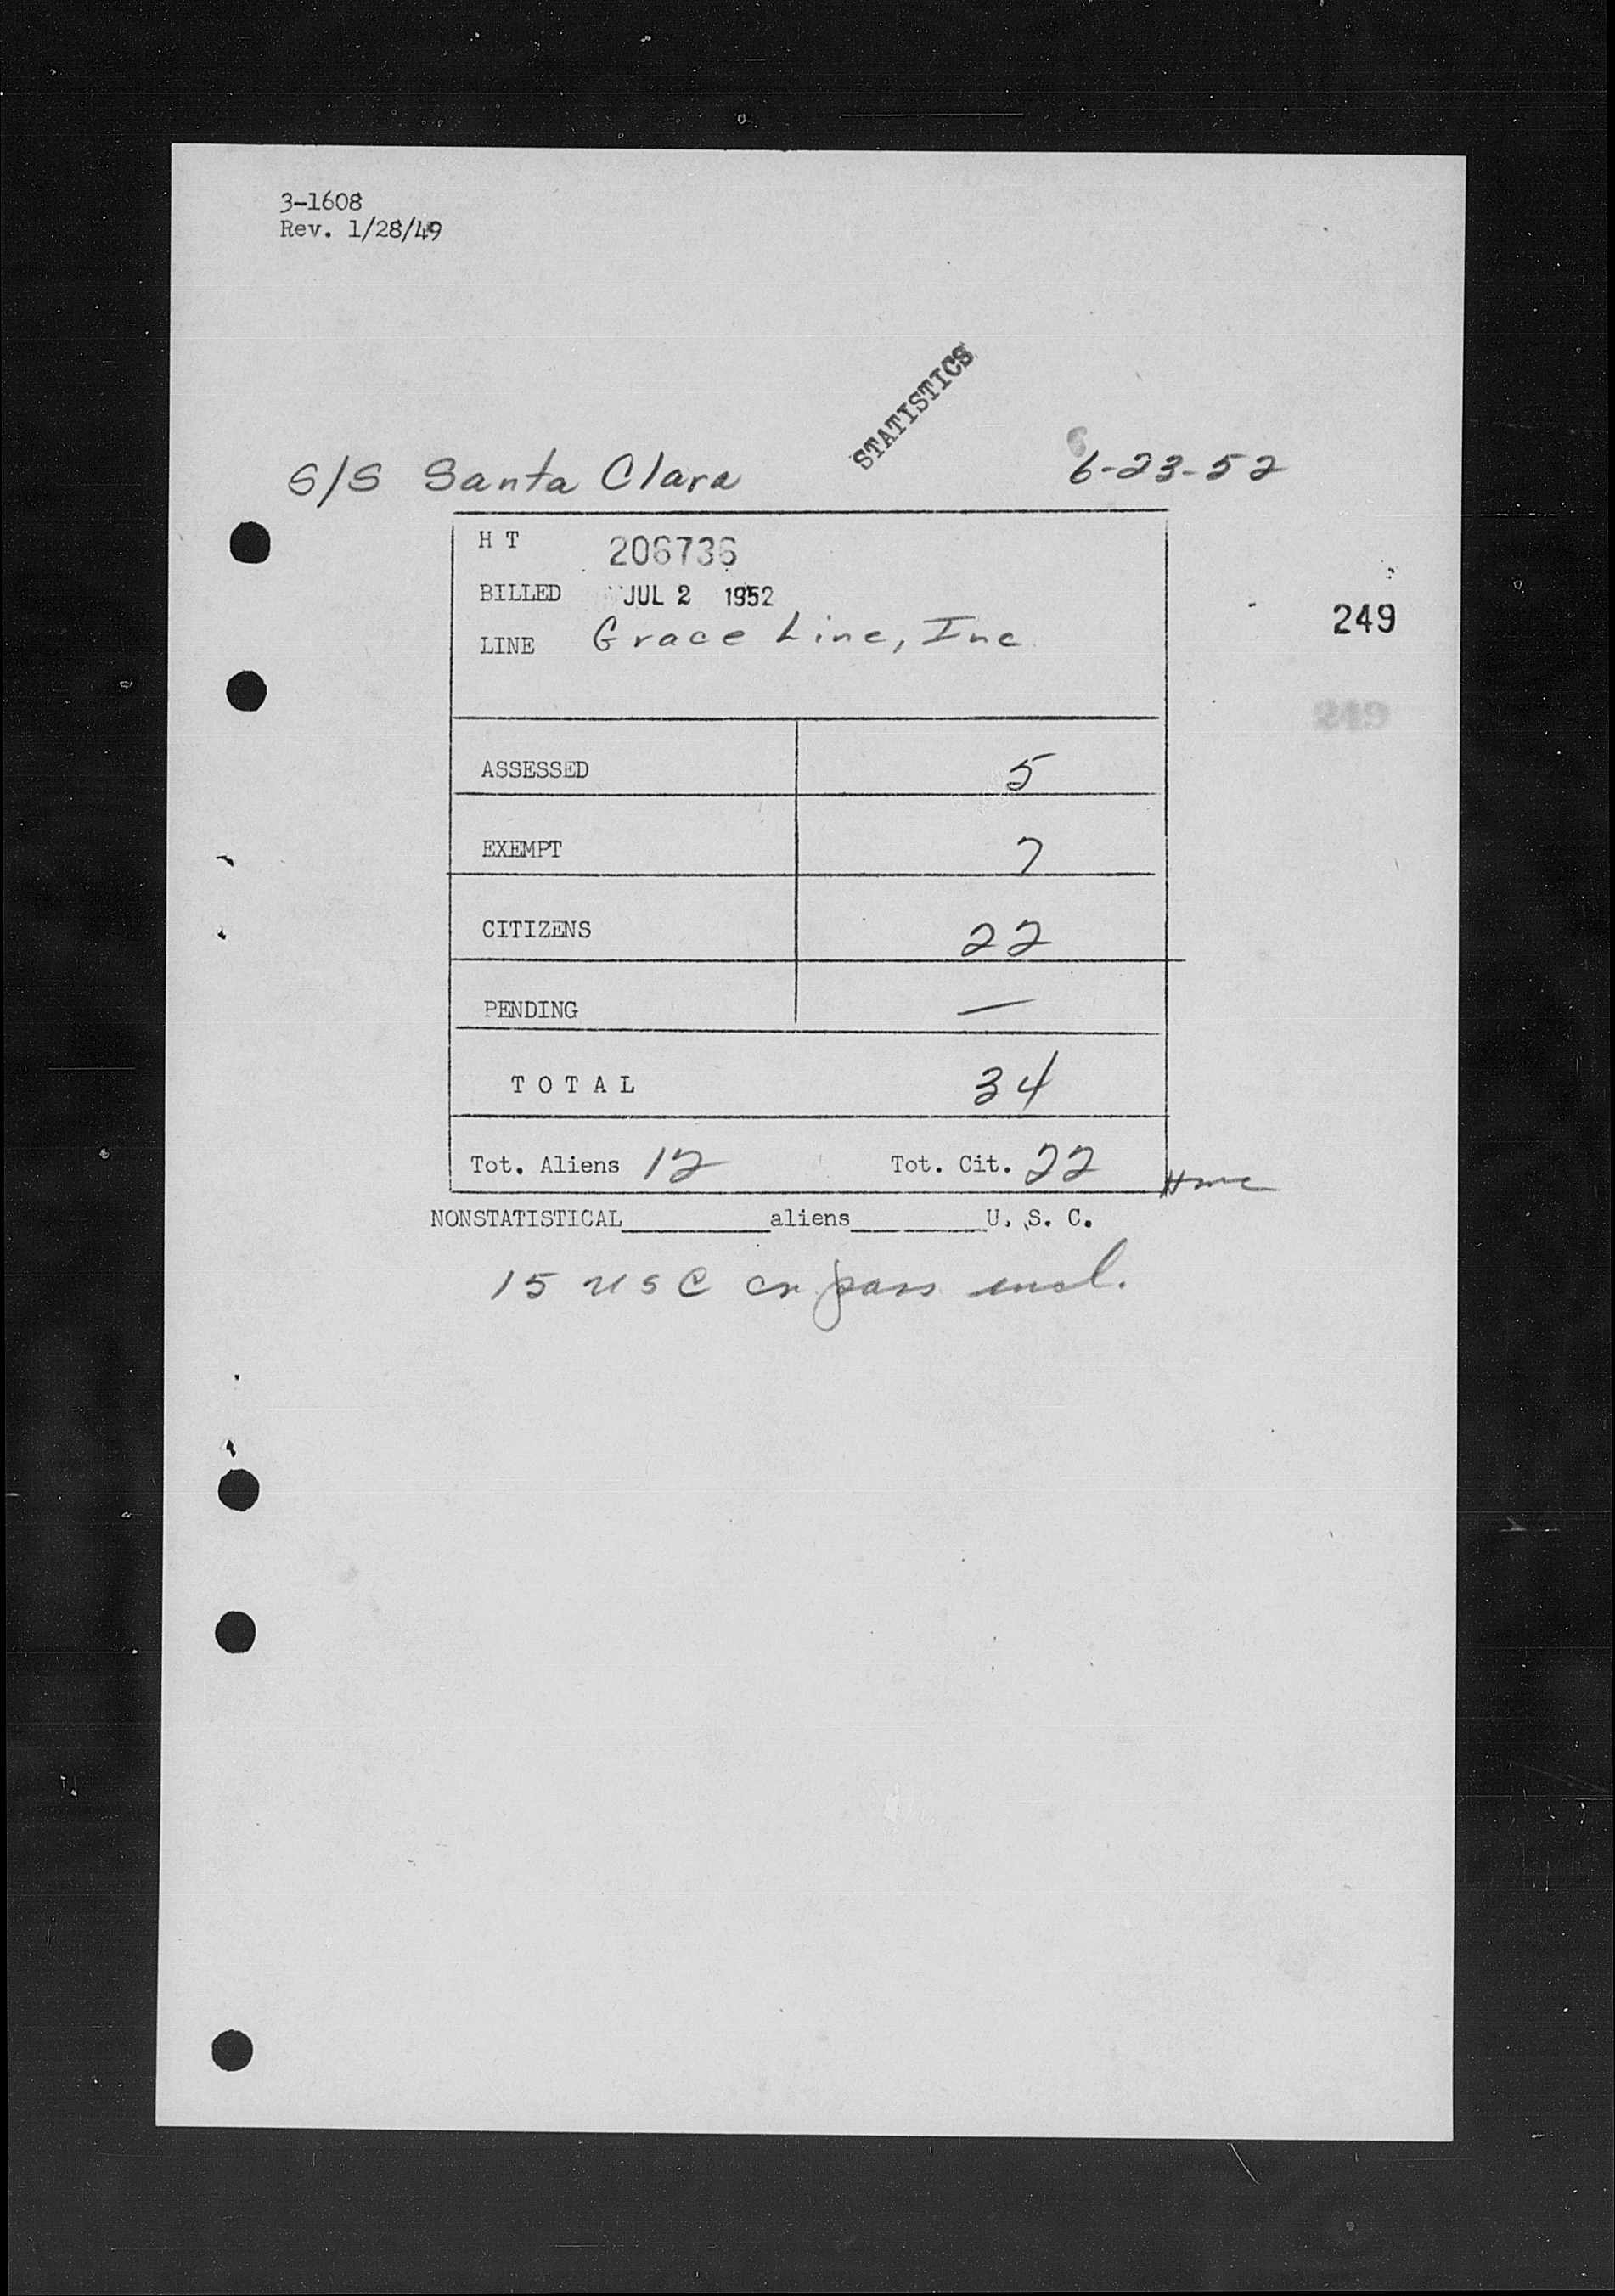 3-1608
Rev. 1/28/49
STATISTICS
S/S Santa Clara 6-23-52
H T 206736
BILLED JUL 2 1952
LINE Grace Line, Inc
249
ASSESSED 5
EXEMPT 7
CITIZENS 22
PENDING —
T O T A L 34
Tot. Aliens 12 Tot. Cit. 22
NONSTATISTICAL__________aliens_________U. S. C.
15 USC cr pass incl.